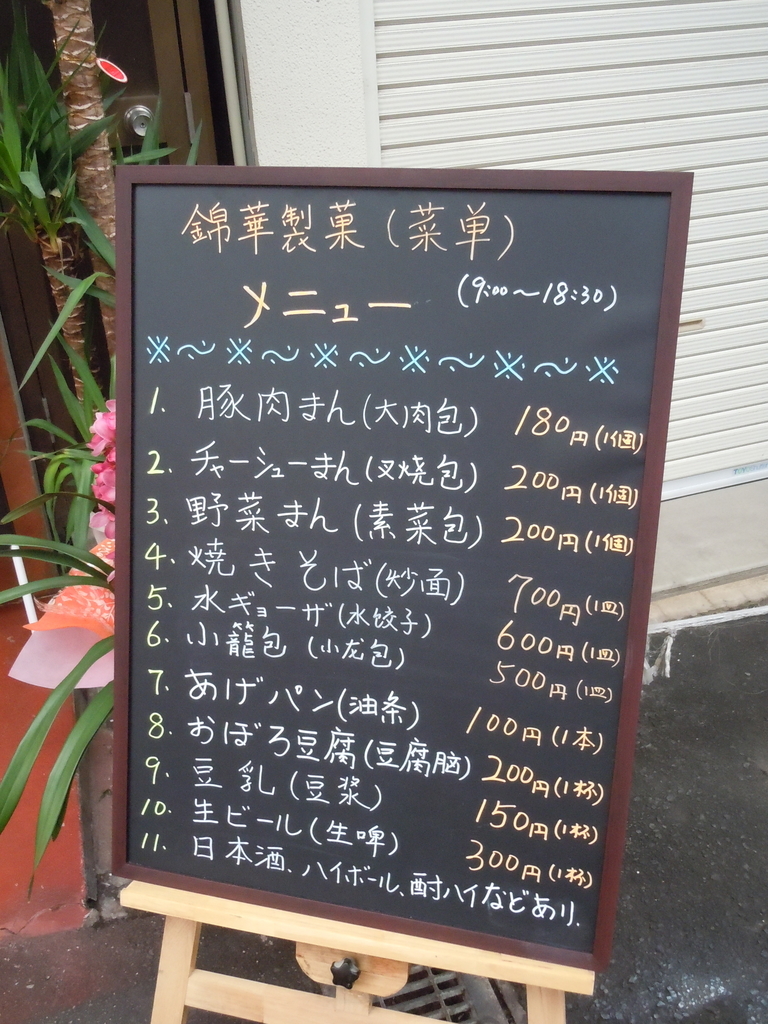 錦華製菓(菜单)
メニュー (9:00〜18:30)
※〜※〜※〜※〜※〜※
1. 豚肉まん(大肉包) 180円(1個)
2. チャーシューまん(叉烧包) 200円(1個)
3. 野菜まん(素菜包) 200円(1個)
4. 焼きそば(炒面) 700円(1皿)
5. 水ギョーザ(水饺子) 600円(1皿)
6. 小籠包(小龙包) 500円(1皿)
7. あげパン(油条) 100円(1本)
8. おぼろ豆腐(豆腐脑) 200円(1杯)
9. 豆乳(豆浆) 150円(1杯)
10. 生ビール(生啤) 300円(1杯)
11. 日本酒、ハイボール、酎ハイなどあり.